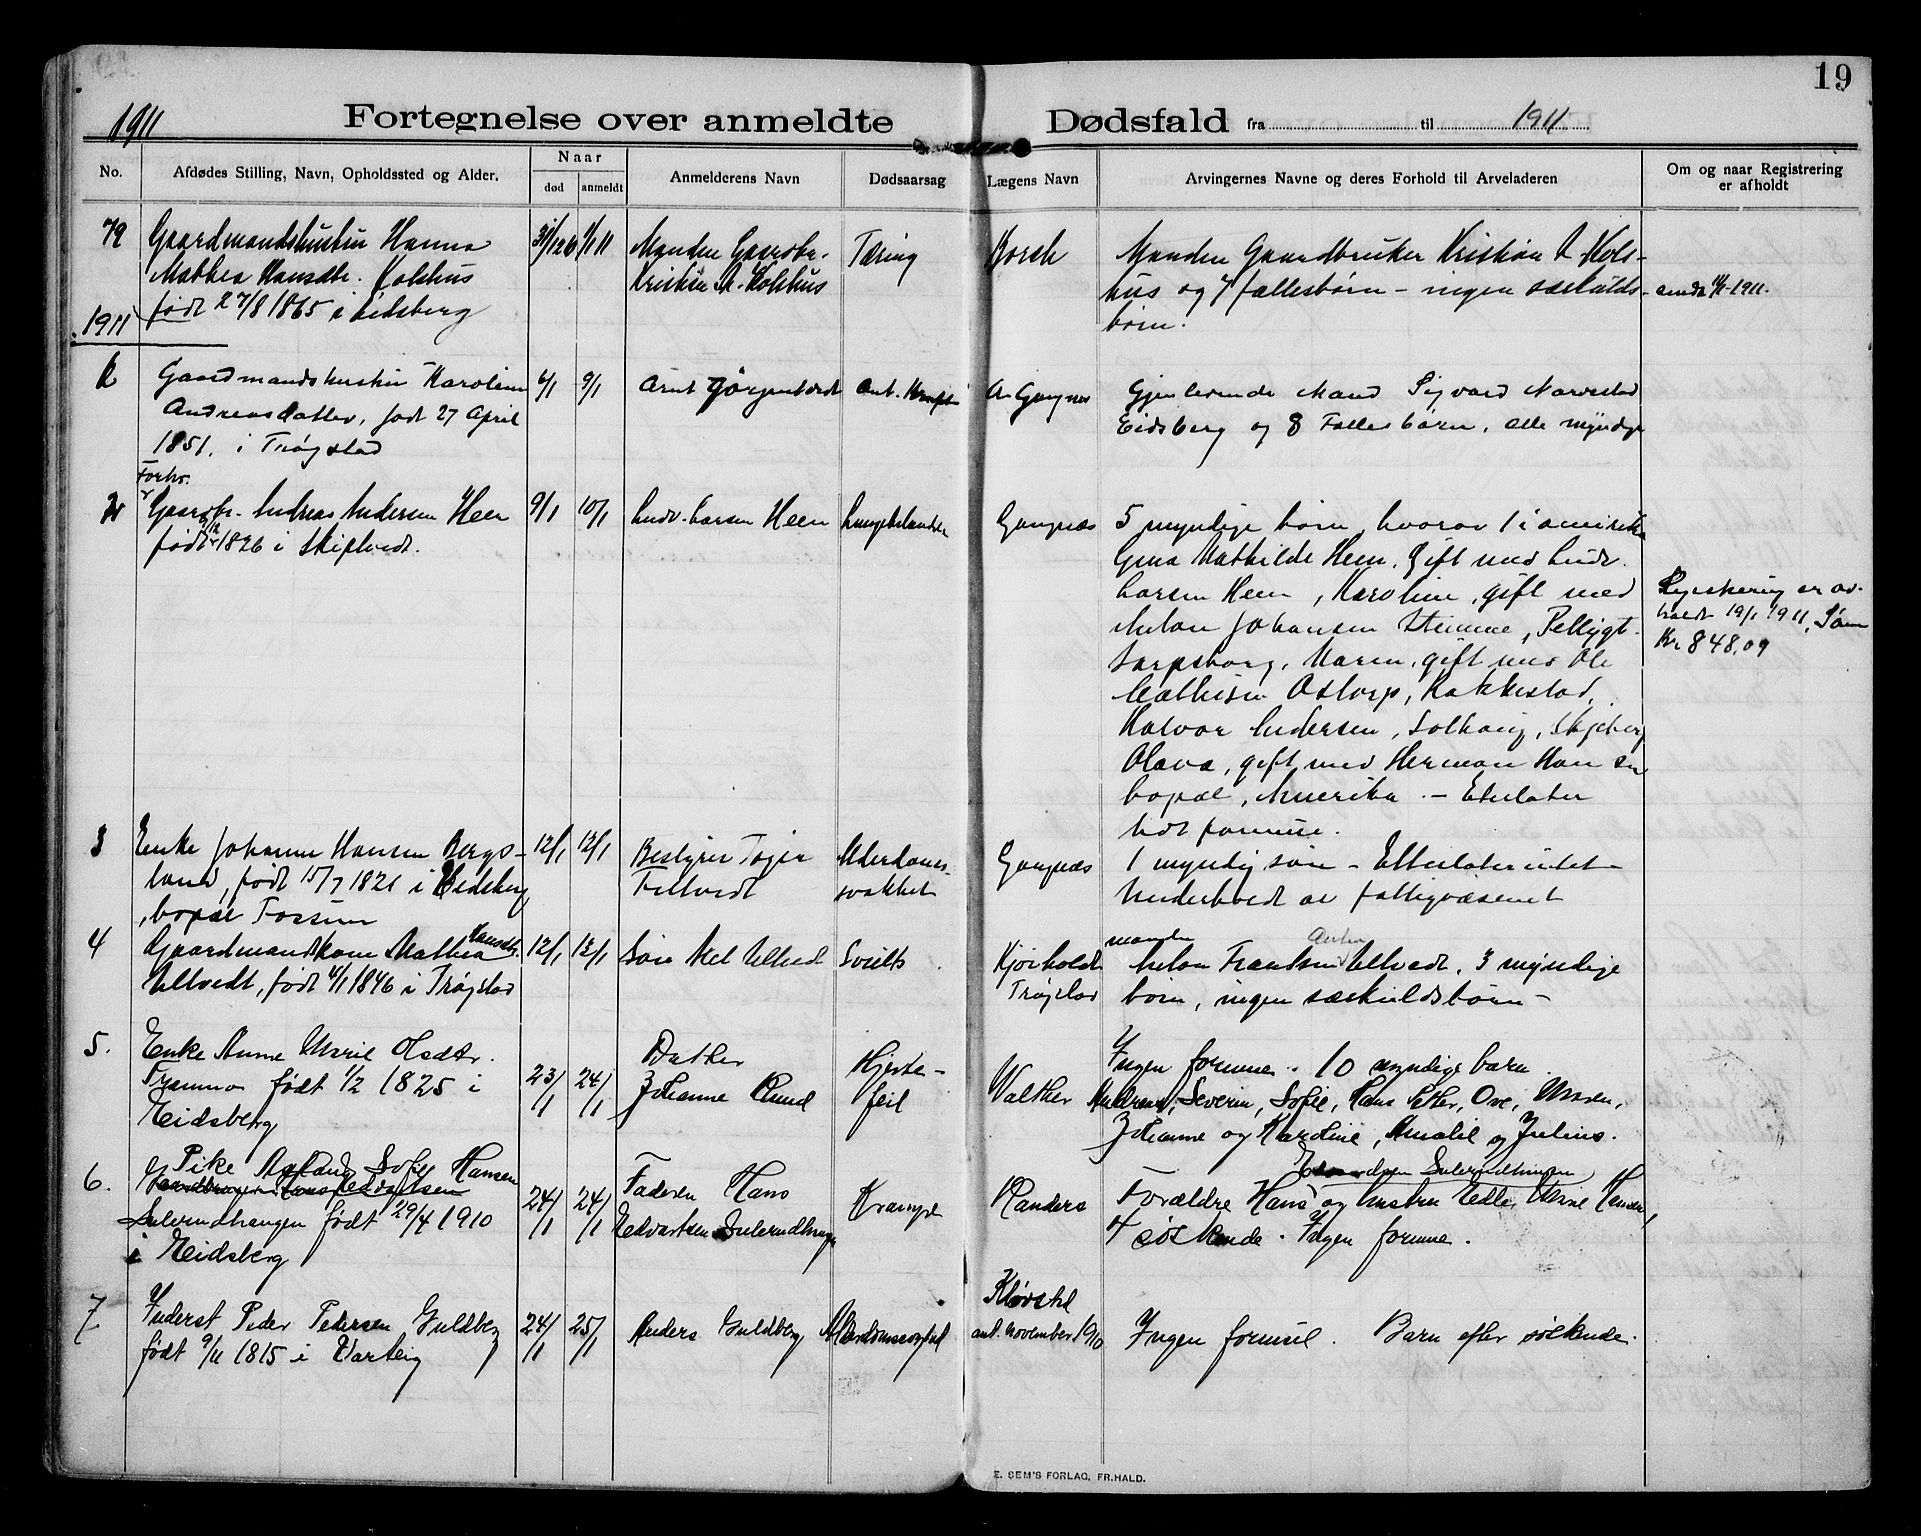 19
1911
Fortegnelse over anmeldte Dødsfald fra til 1911
No.
Afdødes Stilling, Navn, Opholdssted og Alder.
Naar
død
anmeldt
Anmelderens Navn
Dødsaarsag
Lægens Navn
Arvingernes Navne og deres Forhold til Arveladeren
Om og naar Registrering
er afholdt
79
Gaardmandshustru Hanna
Mathea Hansdtr. Kolshus
født 27/8 1865 i Eidsberg
31/12 10
1/1 11
Manden Gaardbr.
Kristian A. Kolshus
Tæring
Borch
Manden Gaardbruker Kristian A. Kols-
hus og 7 fællesbørn - ingen særkulds-
børn.
1911.
1911
Gaardmandshustru Karoline
Andreasdatter, født 27 April
1851. i Trøgstad
6/1
9/1
Arnt
Gangnæs
Gjenlevende Mand Sigvard Narvestad
Eidsberg og 8 Fællesbørn, alle myndige
Forhv.
Gaardbr. Andreas Andersen Heen
født 1826 i Skiptvedt.
9/1
10/1
Ludv. Larsen Heen
Lungebetændelse
Gangnæs
5 myndige børn, hvorav 1 i Amerika
Gina Mathilde Heen. Gift med Ludv.
Larsen Heen, Karoline, gift med
Anton Johansen
Sarpsborg, Maren, gift med Ole
Mathisen Ostorp, Rakkestad,
Halvor Andersen, Solhaug, Skjeberg
Olava, gift med Herman Hansen
bopæl, Amerika. - Efterlater
lidt formue.
Registrering er av-
holdt 19/1 1911,
Kr. 848,09
3
Enke Johanne Hansen Bergs-
land, født 15/7 1821 i Eidsberg
, bopæl Fossum
12/1
12/1
Bestyrer
Alderdoms-
svakhet
Gangnæs
1 myndig søn - Efterlater intet
Underholdt av fattigvæsenet
4
Gaardmandskone Mathea Hansdtr.
Ultvedt, født 4/1 1846 i Trøgstad
12/1
13/1
Søn Axel Ultvedt
Svulst
Kjørholdt
Trøgstad
manden
Anton Frantsen Ultvedt, 3 myndige
børn, ingen særkuldsbørn -
5.
Enke Anne Marie Olsdtr.
født 1/2 1825 i
Eidsberg
23/1
24/1
Datter
Johanne Ruud
Hjerte-
feil
Walther
Ingen formue. 10 myndige barn.
Andreas, Severin, Sofie, Hans Peter, Ove, Maren,
Johanne og Karoline, Amalie og Julius.
6.
Pike Aslaug Sofie Hansen
Sulerudhaugen født 29/4 1910
i Eidsberg
24/1
24/1
Faderen Hans
Edvartsen Sulerudhaugen
Krampe
Randers
Edvardsen Sulerudhaugen
Forældre Hans og hustru Edle Marie Hansen,
4 søskende. Ingen formue.
7
Inderst Peder Pedersen Guldberg
født 9/11 1815 i Varteig
24/1
25/1
Anders Guldberg
Kløvstad
ant. November 1910
Ingen formue. Barn efter søskende.
E. SEM'S FORLAG, FR.HALD.